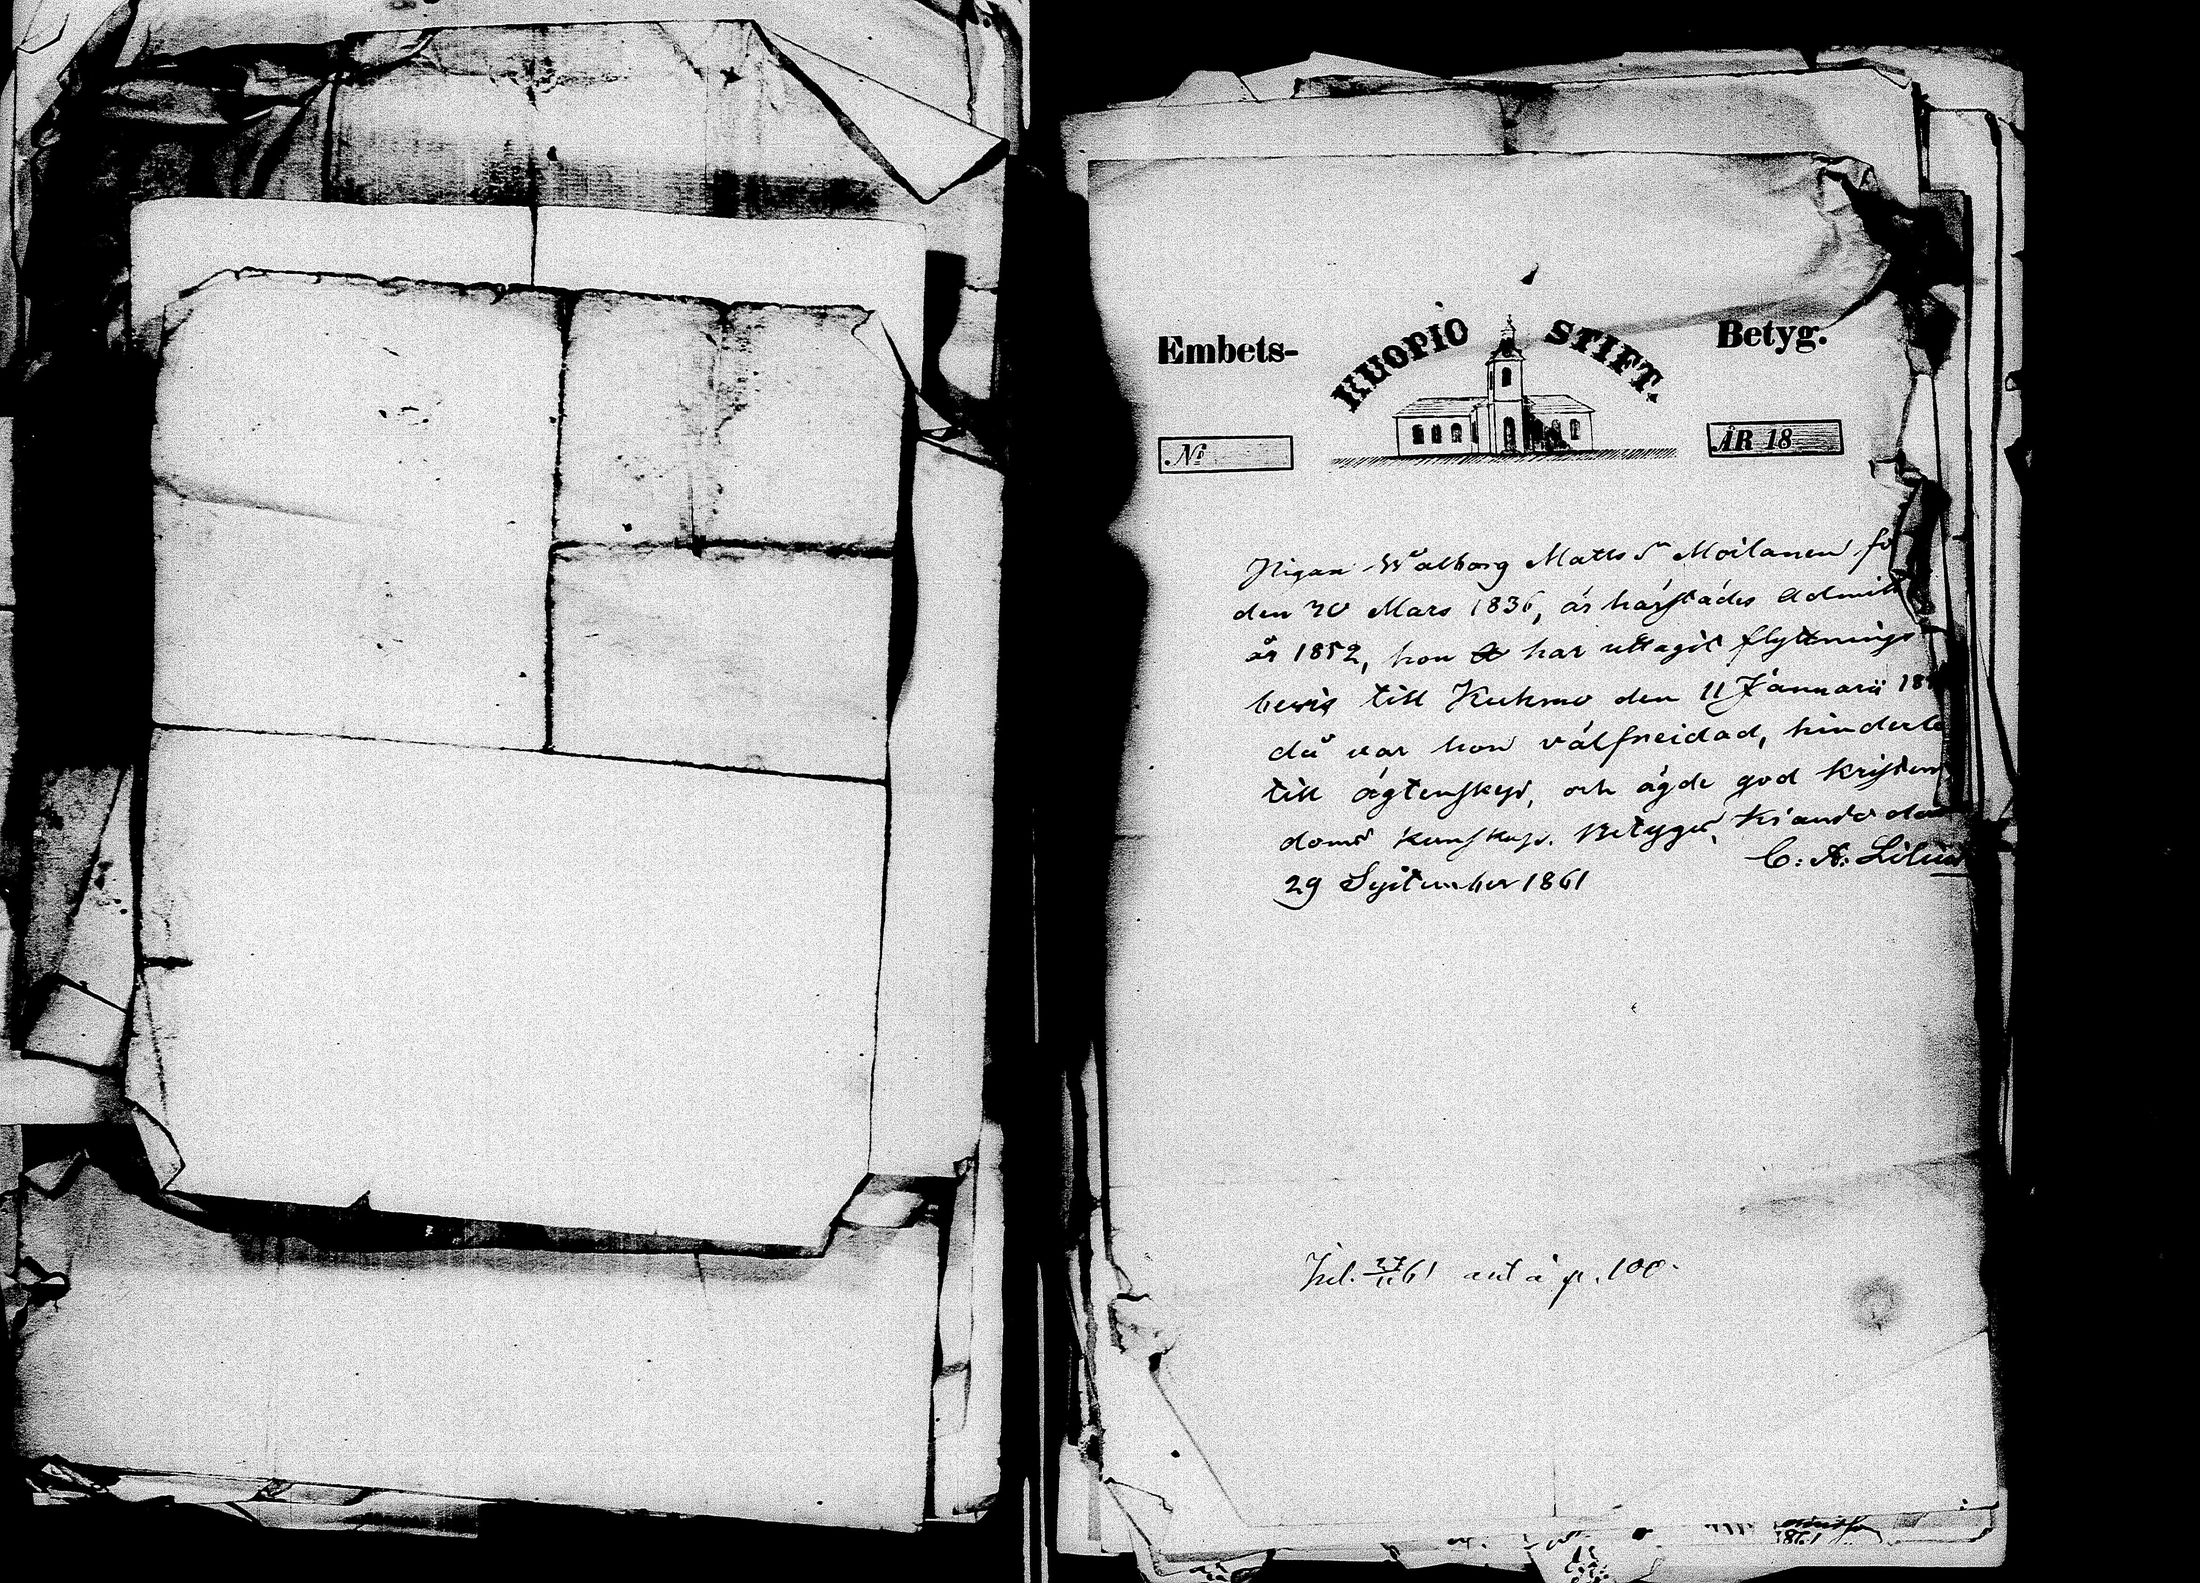 Embets-
KUOPIO STIFT.
Betyg.
No
ÅR 18
Pigan Walborg Matts Dr Moilanen fö
den 20 Mars 1836, är härstädes Admitt
år 1852, hon har uttagit flyttnings
bevis till Kuhmo den 11 Januarii 18
då var hon välfrejdad, hinderlö
till ägtenskap, och ägde god kristen
doms kunskap. Betygar, Kianto den
29 September 1861
C. A. Lilius
Inl. 27/11 61 ant. å p. 100.
1861